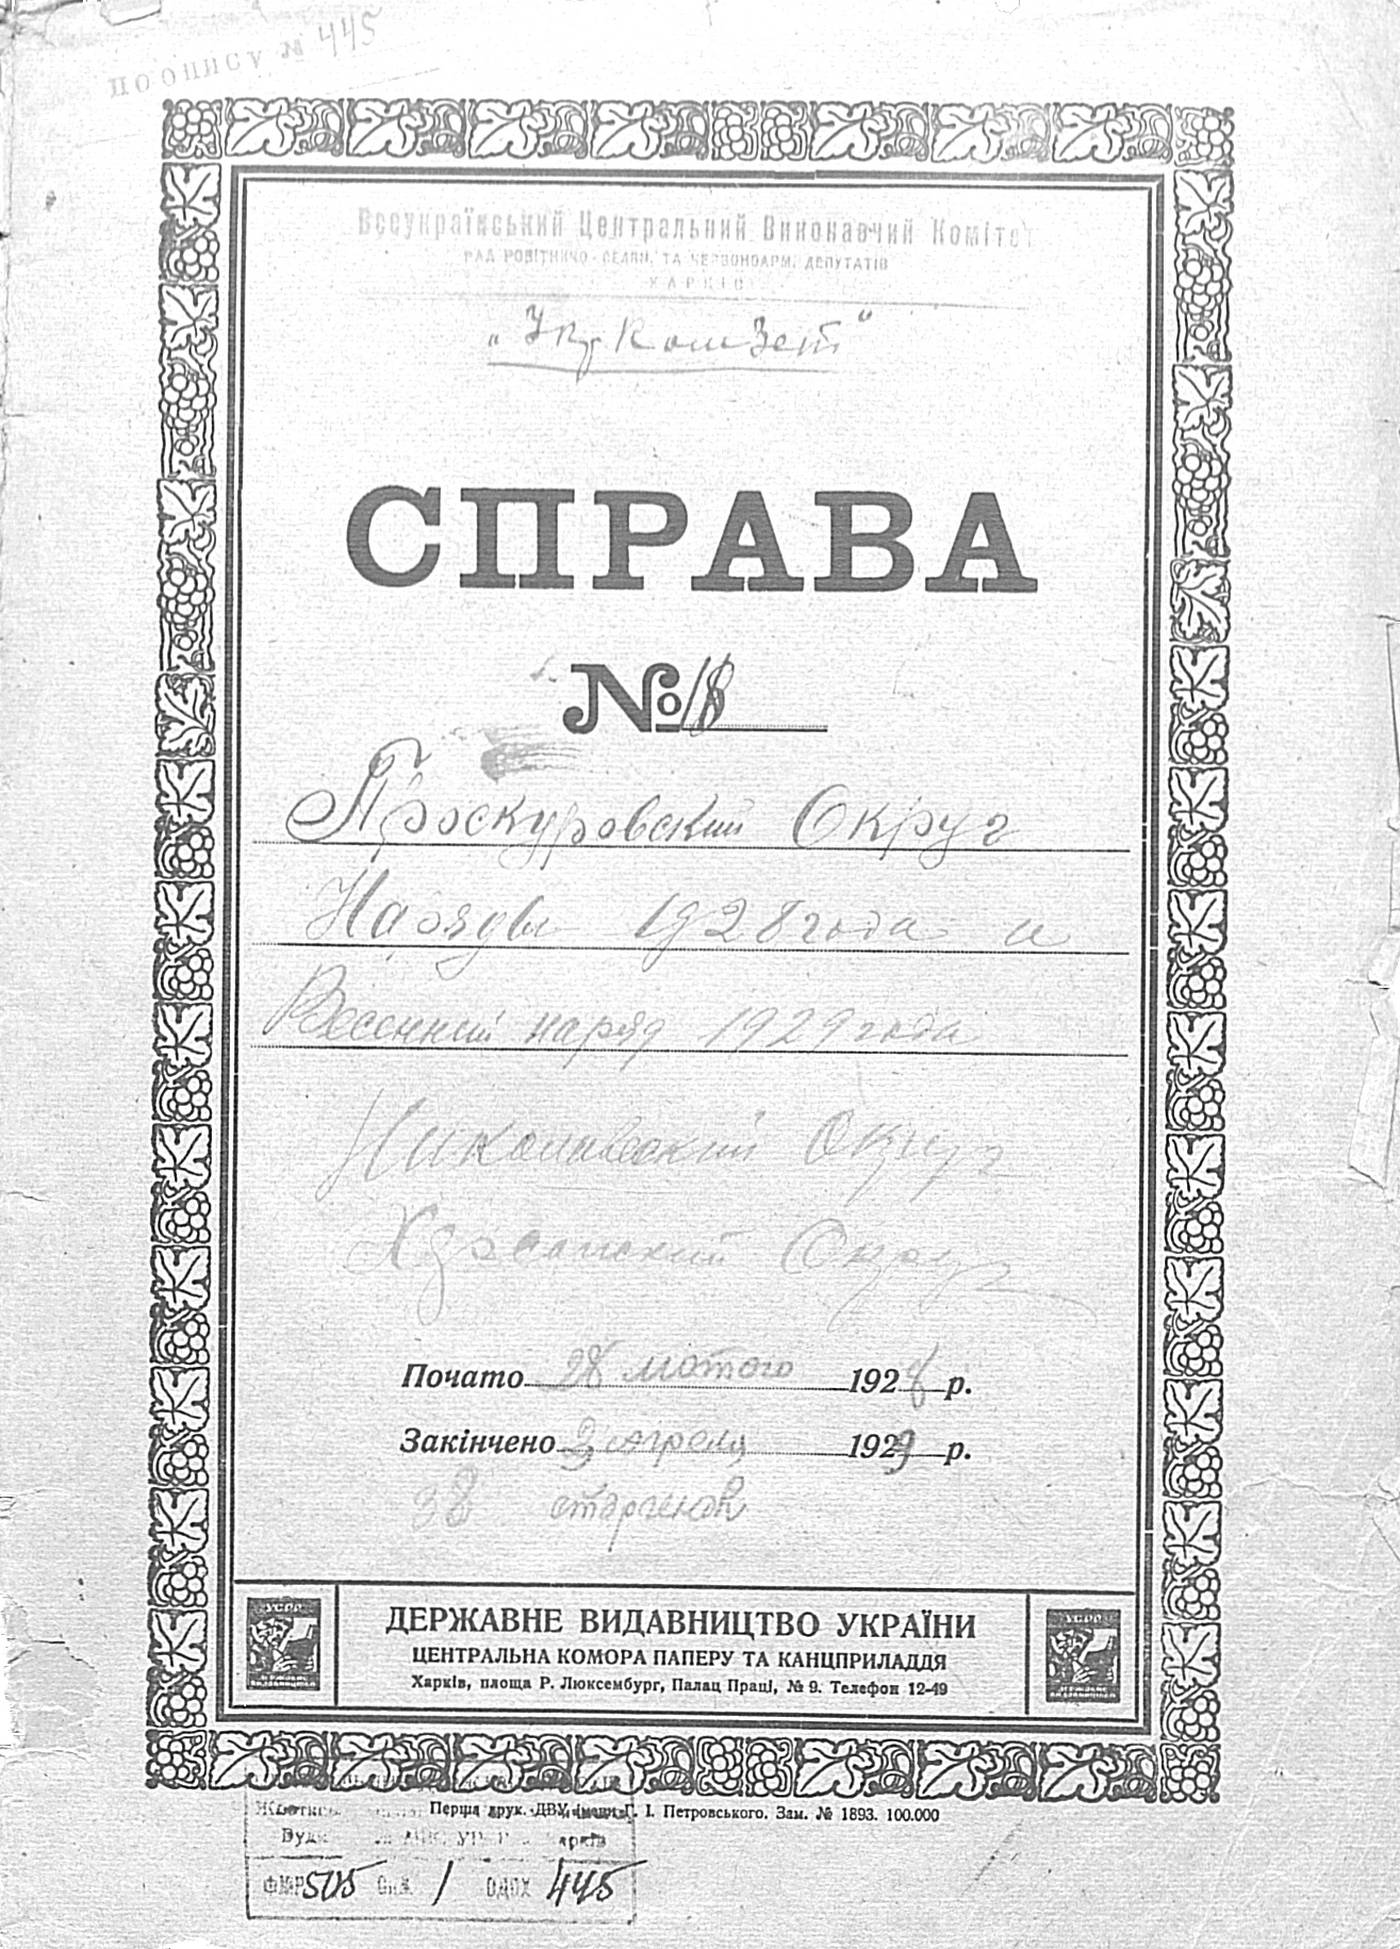 по опису № 445
Всеукраїнський Центральний Виконавчий Комітет
РАД РОБІТНИЧО-СЕЛЯН. ТА ЧЕРВОНОАРМ. ДЕПУТАТІВ
ХАРКІВ
„УкрКомЗет"
СПРАВА
№ 18
Проскуровский Округ
Наряды 1928 года и
Весенний наряд 1929 года
Николаевский Округ
Херсонский Округ
Почато 28 лютого 1928 р.
Закінчено 3 апреля 1929 р.
38
ДЕРЖАВНЕ ВИДАВНИЦТВО УКРАЇНИ
ЦЕНТРАЛЬНА КОМОРА ПАПЕРУ ТА КАНЦПРИЛАДДЯ
Харків, площа Р. Люксембург, Палац Праці, № 9. Телефон 12-49
УСРР
УСРР
Перша друк. ДВУ імени Г. І. Петровського. Зам. № 1893. 100.000
Харків
505 1 ОДОХ 445